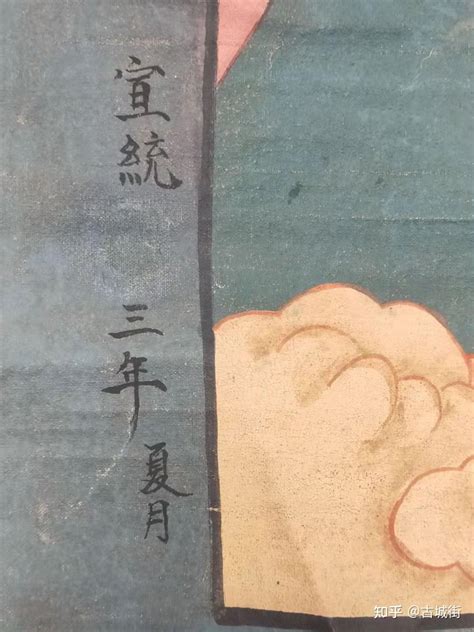 宣統三年夏月
知乎 @古城街